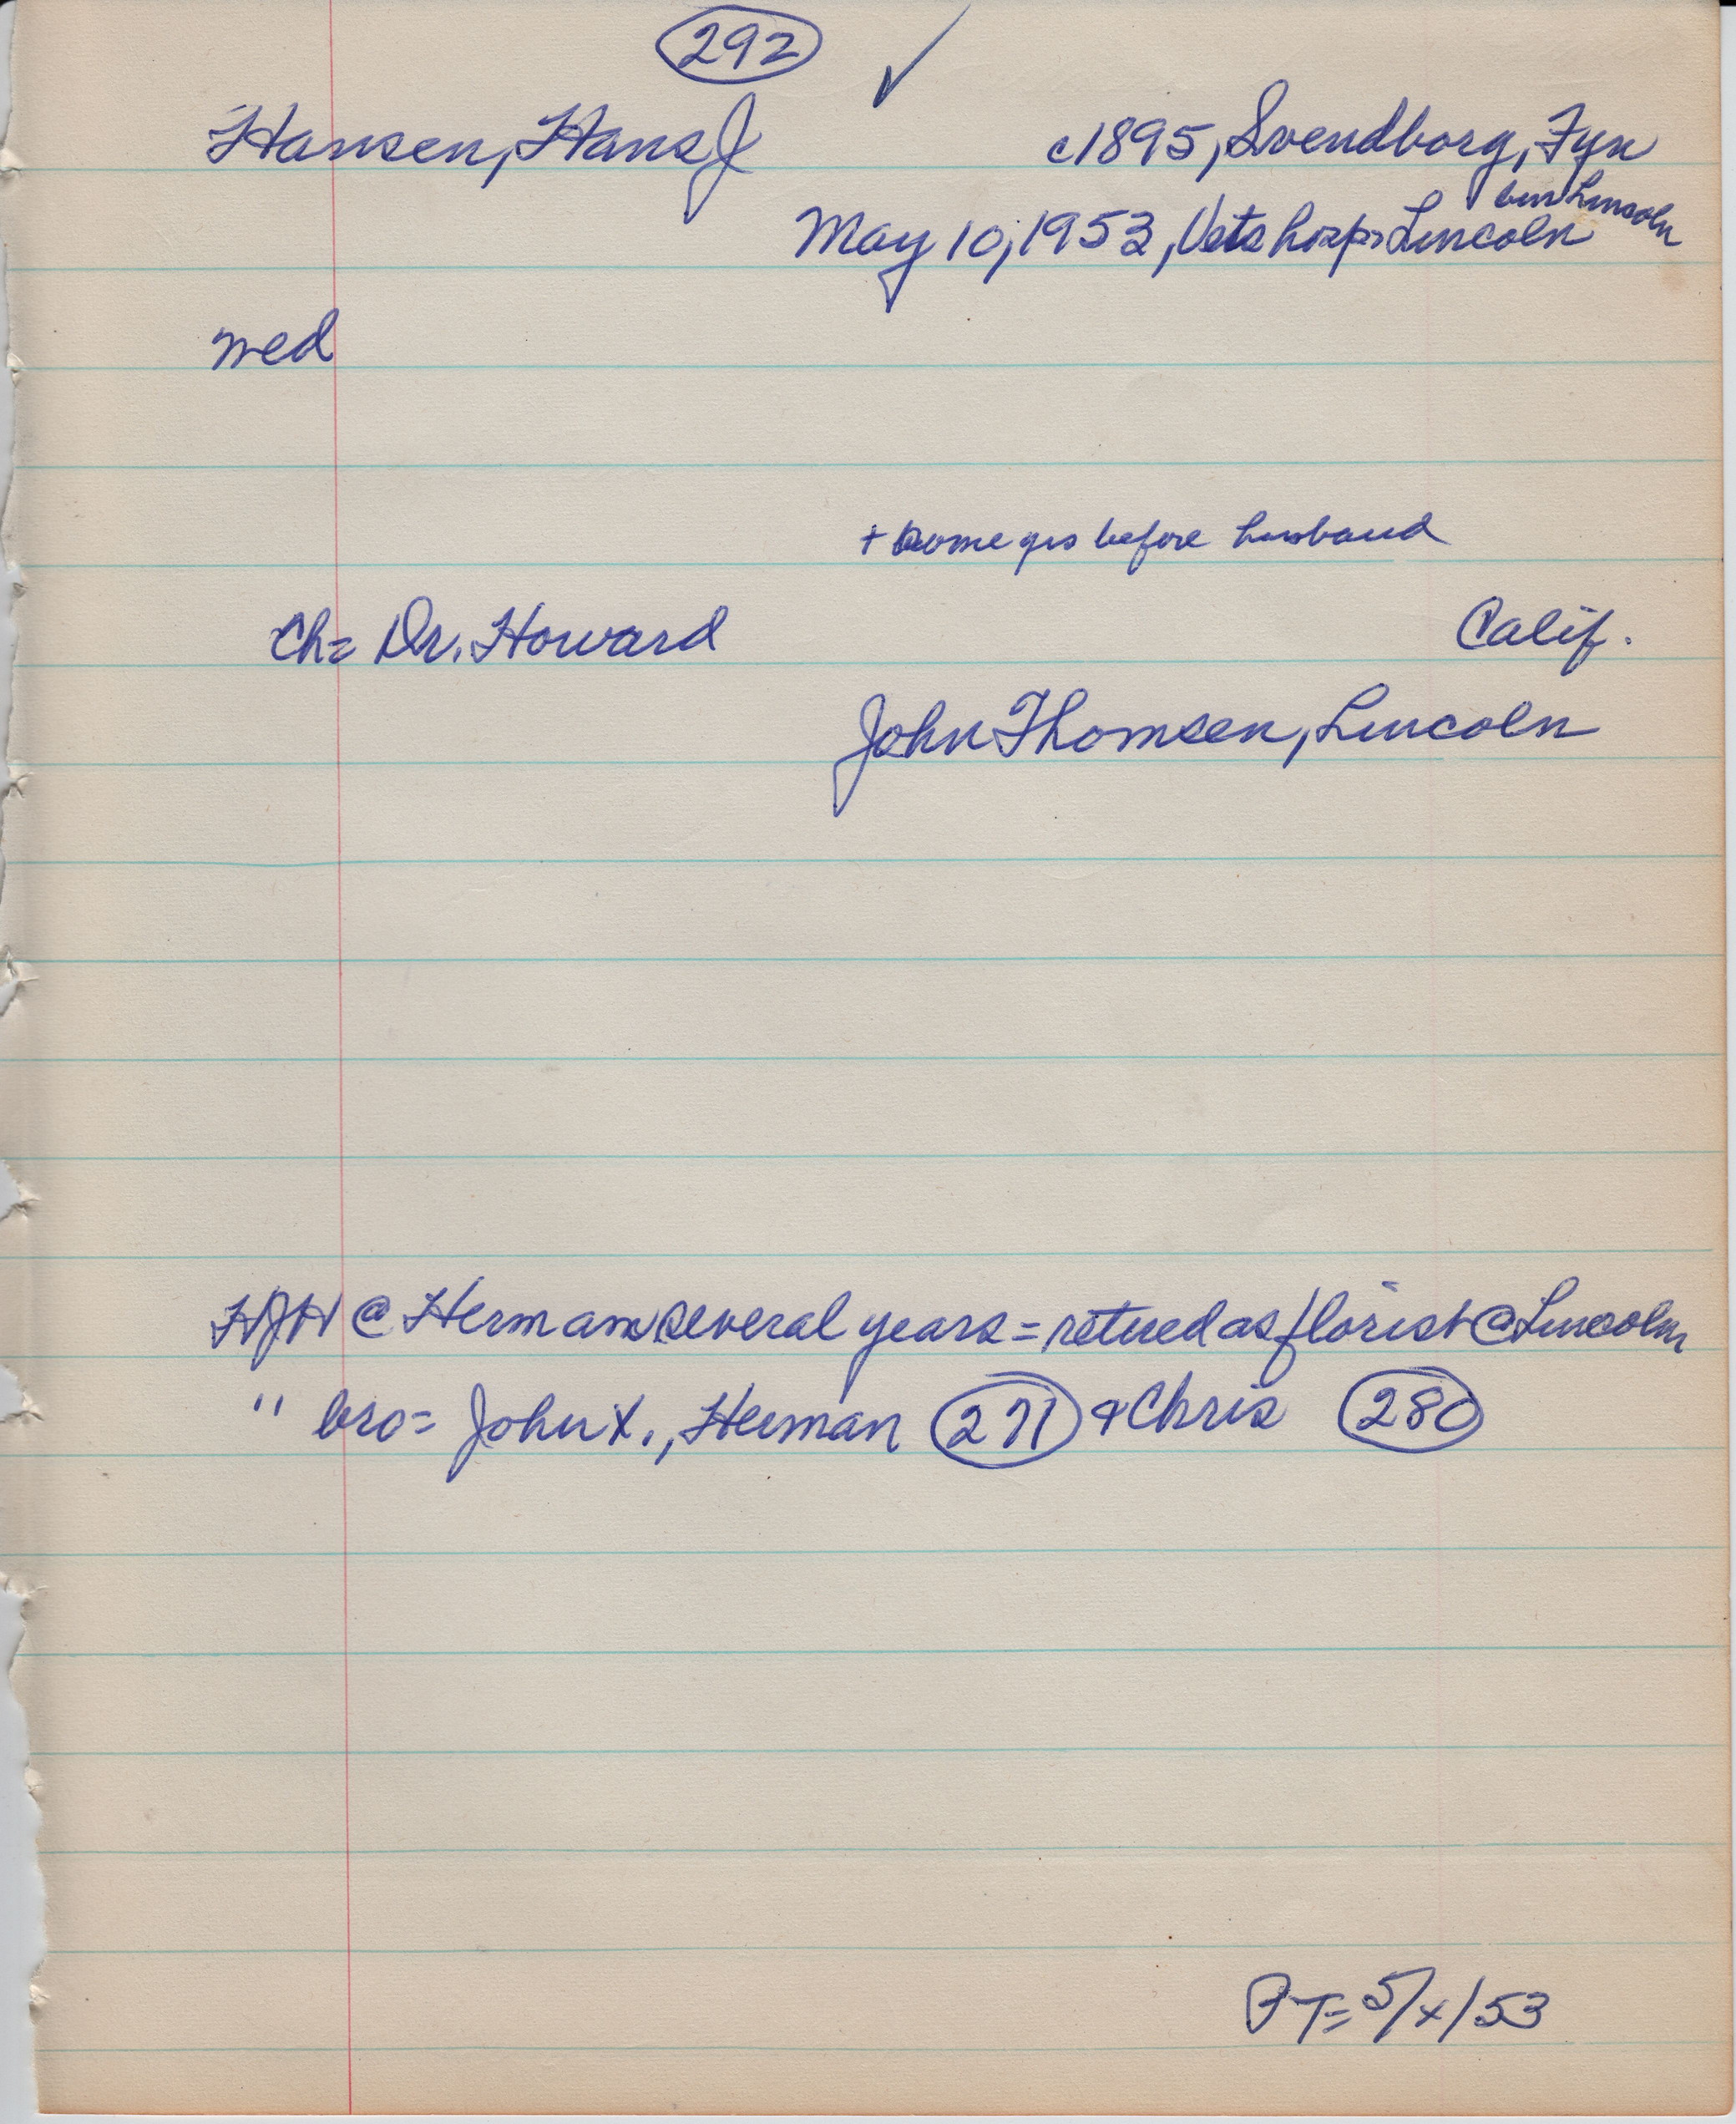 292 ✓
Hansen, Hans J c1895, Svendborg, Fyn
bur Lincoln
May 10, 1953, Vets hosp. Lincoln
med
+ some yrs before husband
Ch= Dr. Howard Calif.
John Thomsen, Lincoln
HJH @ Herman several years = retired as florist @ Lincoln
" bro= John X., Herman 271 & Chris 280
BT= 5/x/53